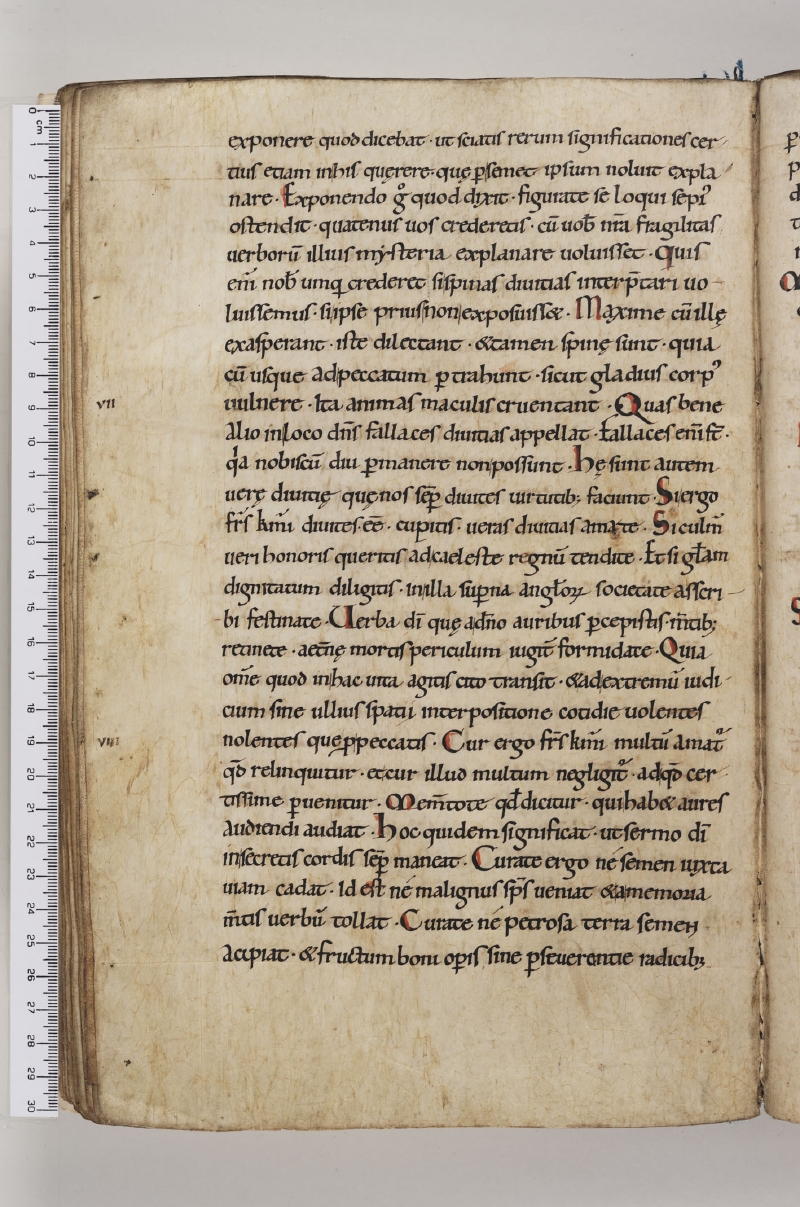 exponere quod dicebat · ut sciatis rerum significationes cer
tius etiam in his quęrere · quę p̱ semet ipsum noluit expla
nare · Exponendo gͦ quod dixit · figurate se loqui sepi᾽
ostendit · quatenus uos crederetis · cū uob̄ nr̄a fragilitas
uerborū illius mysteria explanare uoluisset · Quis
em̄ nob̄ umq̄ crederet si spinas diuitias interp̄tari uo
luissemus · si ipse prius non exposuisset · Maxime cū illę
exasperant · iste dilectant · & tamen spinę sunt · quia
cū usque ad peccatum p̱trahunt · sicut gladius corp᾽
VII uulnere · Ita animas maculis cruentant · Quas bene
Alio in loco dn̄s fallaces diuitias appellat · fallaces em̄ st̄ ·
q̇a nobiscū diu p̱manere non possunt · Hę sunt autem
uerę diuitię quę nos sep̄ diuites uirtutib; faciunt · Si ergo
fr̄s km̄i diuites · ee᷎ · cupitis · ueras diuitias amate · Si culm̄
ueri honoris queritis ad caeleste regnū tendite · Et si gl̄am
dignitatum diligitis · in illa sup̱na angl̄oꝝ societate asscri
bi festinate · Uerba dī quę a dn̄o auribus p̱cepistis · m̄tib;
retinete · aet̄nę mortis periculum iugit̄ formidate · Quia
om̄e quod in hac uita agitis cito transit · & ad extremū iudi
cium sine ullius spatii interpositione cotidie uolentes
VIII nolentes quę p̱peccatis · Cur ergo fr̄s km̄i multū amatͬ
qd̄ relinquitur · et cur illud multum negligitͬ · ad qd̄ cer
tissime p̱uenitur · Mem̄tote qd̄ dicitur · qui hab& aures
Audiendi audiat · Hoc quidem significat · ut sermo dī
in secretis cordis sep̄ maneat · Curate ergo né semen iuxta
uiam cadat · Id est né malignus sp̄s ueniat & a memoria
m̄tis uerbū tollat · Curate né petrosa terra semen
Accipiat · & fructum boni op̱is sine p̱seuerantie radicib;